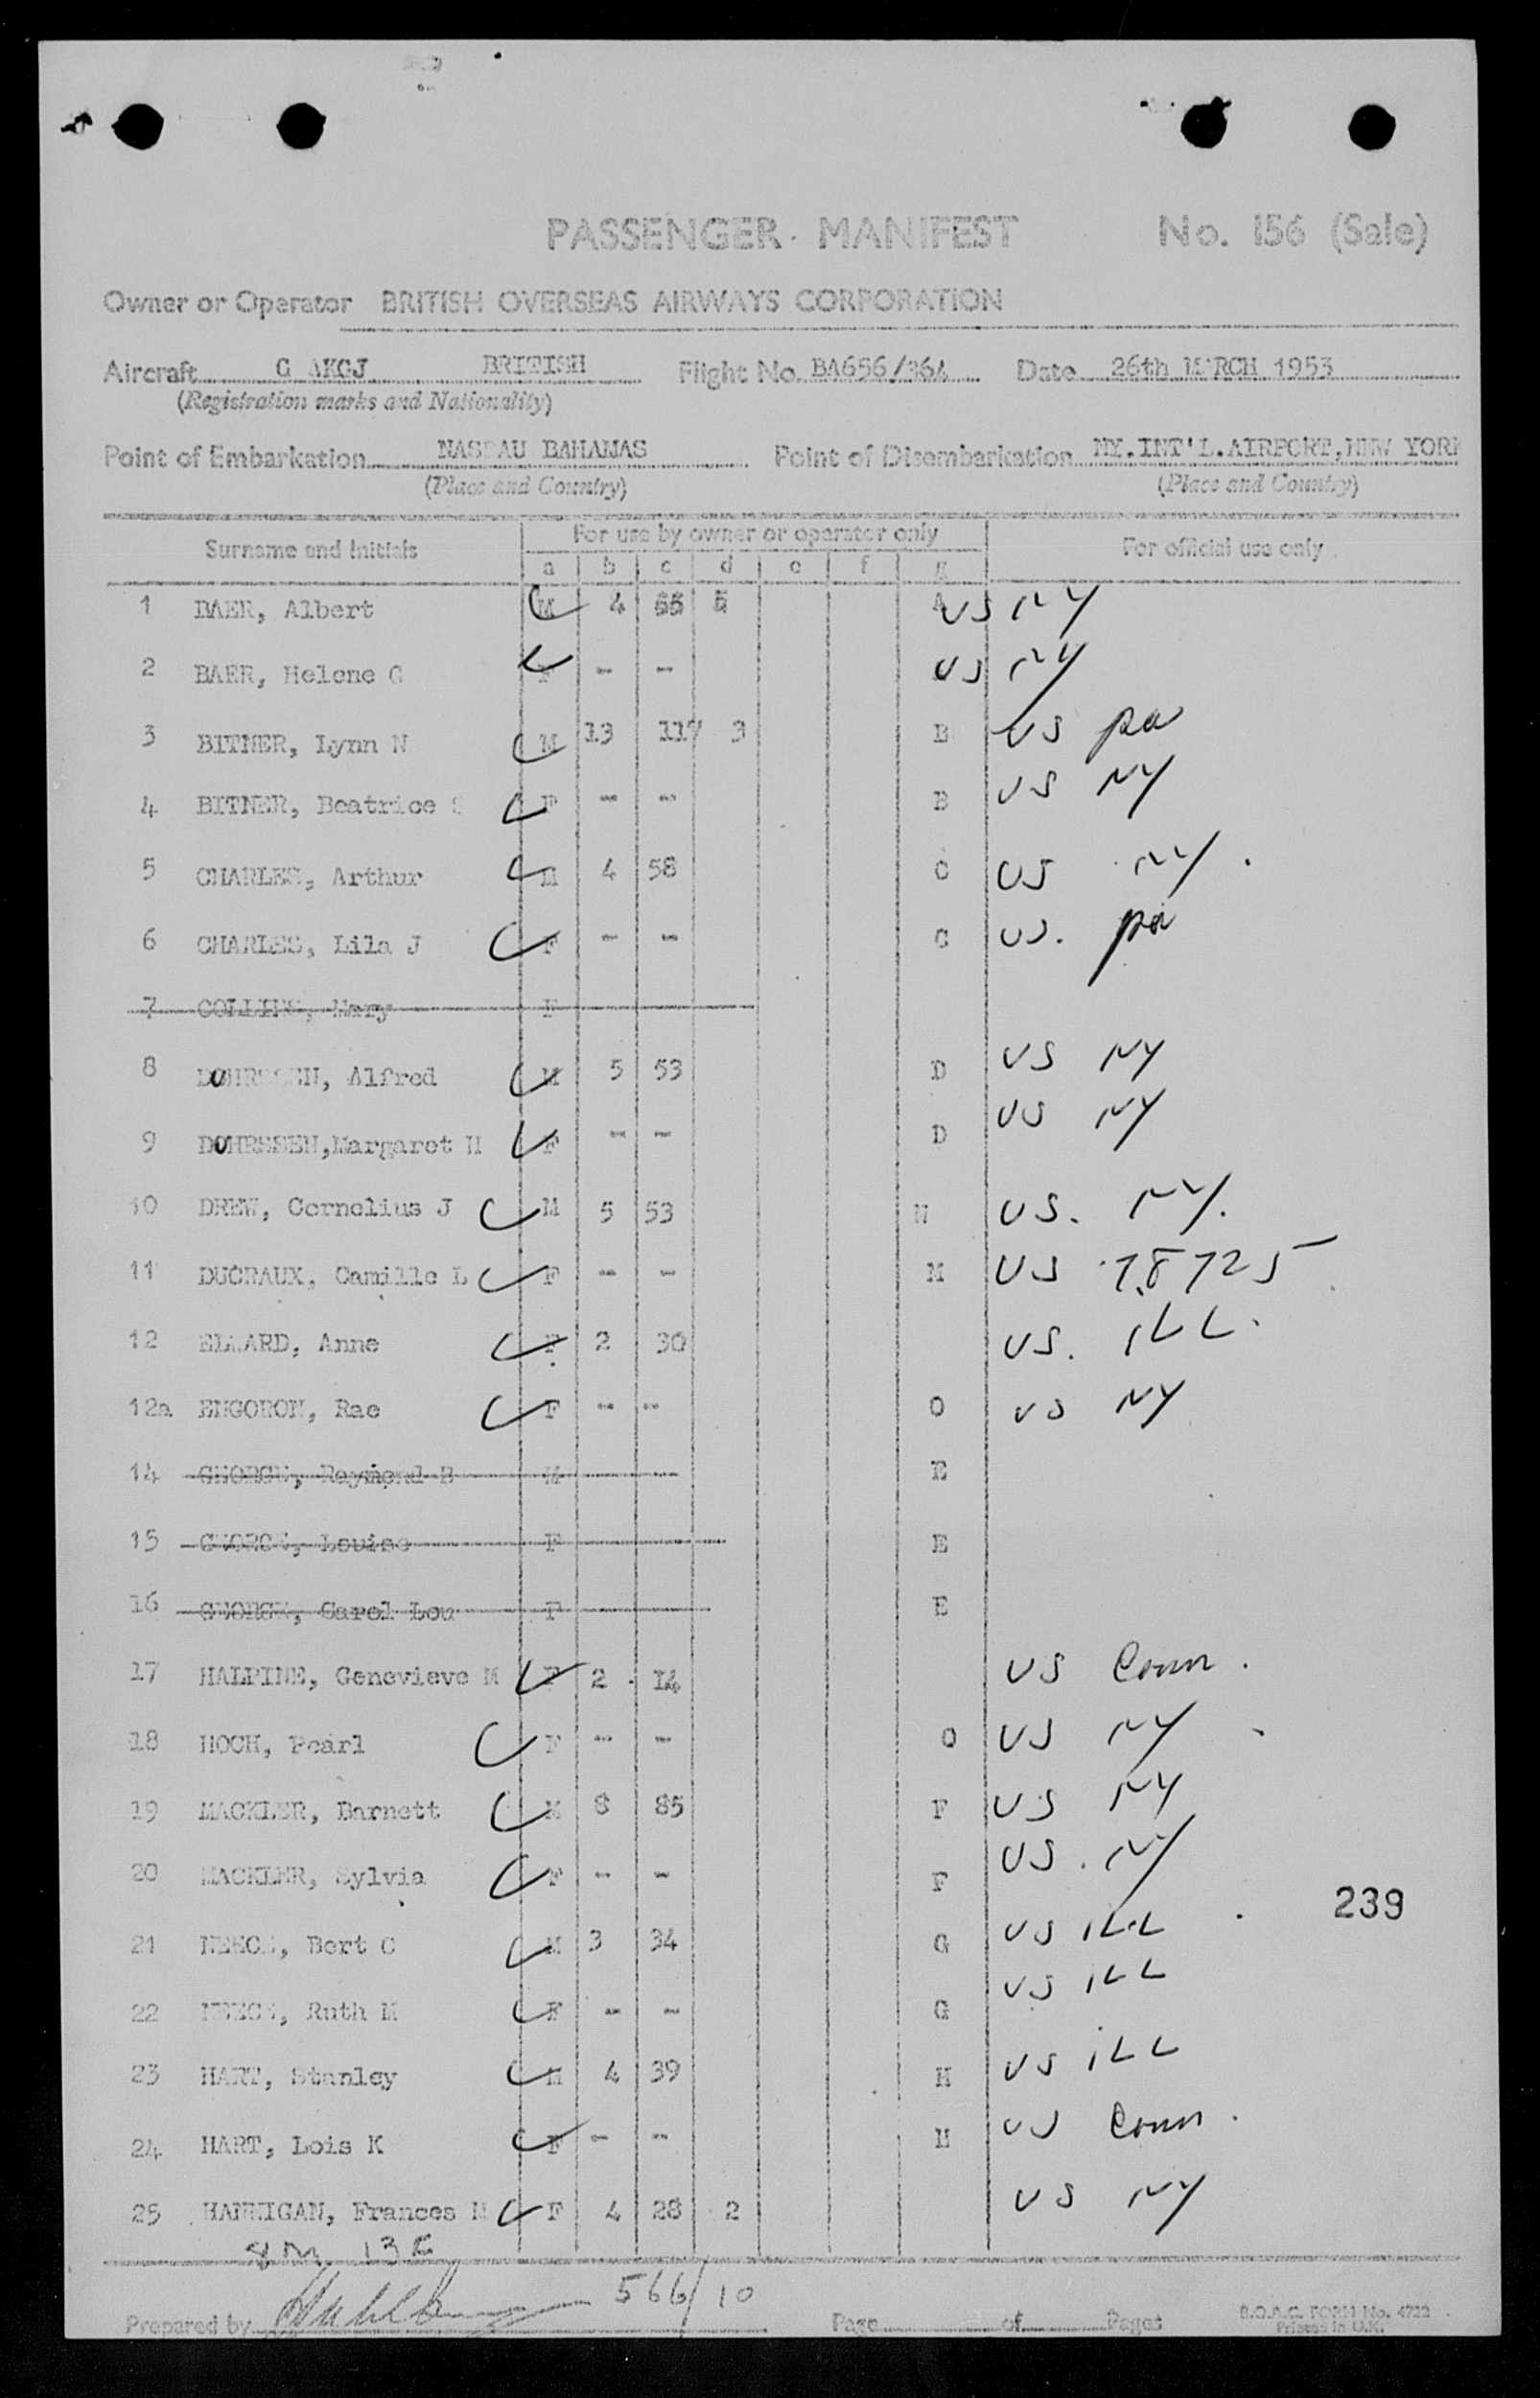 PASSENGER MANIFEST No. 156 (Sale)
Owner or Operator BRITISH OVERSEAS AIRWAYS CORPORATION
Aircraft G AKGJ BRITISH Flight No. BA656/364 Date 26th MARCH 1953
(Registration marks and Nationality)
Point of Embarkation NASSAU BAHAMAS Point of Disembarkation NY.INT'L.AIRPORT, NEW YORK
(Place and Country) (Place and Country)
Surname and Initials For use by owner or operator only For official use only
a b c d e f g
1 BAER, Albert M 4 55 5 A US NY
2 BAER, Helene G F - - US NY
3 BITNER, Lynn N M 13 117 3 B US pa
4 BITNER, Beatrice S F - - B US NY
5 CHARLES, Arthur M 4 58 C US NY.
6 CHARLES, Lila J F - - C US. pa
7 COLLINS, Mary F
8 DOHRSSEN, Alfred M 5 53 D US NY
9 DOHRSSEN, Margaret H F - - D US NY
10 DREW, Cornelius J M 5 53 US. NY.
11 DUCRAUX, Camille L F - - M US 78725
12 ELLARD, Anne F 2 30 US. ILL.
12a ENGORON, Rae F - - O US NY
14 GEORGE, Raymond B M E
15 GEORGE, Louise F E
16 GEORGE, Carol Lou F E
17 HALPINE, Genevieve M F 2 14 US Conn.
18 HOCH, Pearl F - - O US NY
19 MACKLER, Barnett M 8 85 F US NY
20 MACKLER, Sylvia F - - F US. NY
239
21 NEECE, Bert C M 3 34 G US ILL
22 NEECE, Ruth M F - - G US ILL
23 HART, Stanley M 4 39 H US ILL
24 HART, Lois K F - - H US Conn.
25 HANNIGAN, Frances M F 4 28 2 US NY
8M 13F
566/10
Prepared by Page of Pages
B.O.A.C. FORM No. 4722
Printed in U.K.